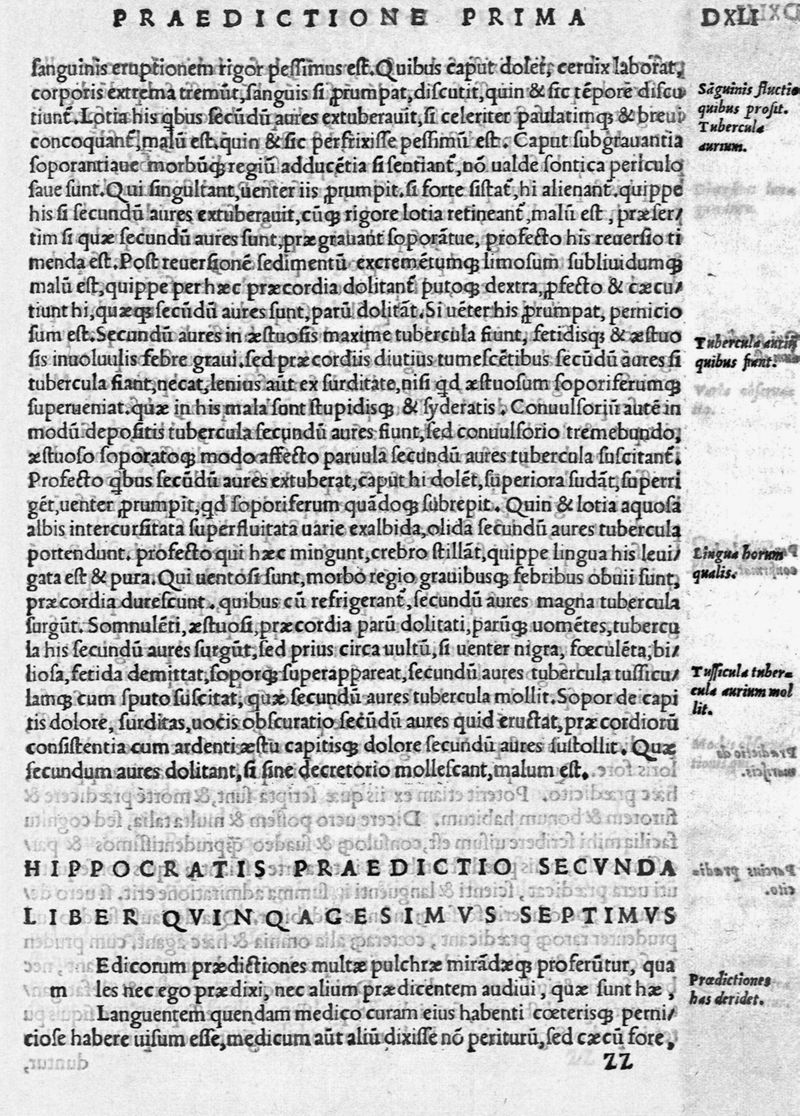 PRAEDICTIONE PRIMA DXLI
sanguinis eruptionem rigor pessimus est. Quibus caput dolet, ceruix laborat,
corporis extrema tremūt, sanguis si ꝓrumpat, discutit, quin & sic tēpore discu
Sāguinis fluctio
quibus prosit.
tiunt̃. Lotia his qbus secūdū aures extuberauit, si celeriter paulatimqꝫ & breui
Tubercula
aurium.
concoquant̃, malū est. quin & sic perfrixisse pessimū est. Caput subgrauantia
soporantiaue morbūqꝫ regiū adducētia si sentiant̃, nō ualde sontica periculo
saue sunt. Qui singultant, uenter iis ꝓrumpit. si forte sistat̃, hi alienant̃. quippe
his si secundū aures extuberauit, cūqꝫ rigore lotia retineant̃, malū est, præser/
tim si quæ secundū aures sunt, prægrauant soporātue, profecto his reuersio ti
menda est. Post reuersionē sedimentū excremētumqꝫ limosum subliuidumqꝫ
malū est, quippe per hæc præcordia dolitant̃ putoqꝫ dextra, ꝓfecto & cæcu/
tiunt hi, quæqꝫ secūdū aures sunt, parū dolitāt. Si uēter his ꝓrumpat, pernicio
sum est. Secundū aures in æstuosis maxime tubercula fiunt, fetidisqꝫ & æstuo
Tubercula auriū
quibus fiunt.
sis inuoluulis febre graui. sed præcordiis diutius tumescētibus secūdū aures si
tubercula fiant, necat, lenius aūt ex surditate, nisi qd æstuosum soporiferumqꝫ
superueniat. quæ in his mala sunt stupidisqꝫ & syderatis. Conuulsoriū autē in
modū depositis tubercula secundū aures fiunt, sed conuulsorio tremebundo,
æstuoso soporatoqꝫ modo affecto paruula secundū aures tubercula suscitant̃.
Profecto qbus secūdū aures extuberat, caput hi dolēt, superiora sudāt, superri
gēt, uenter ꝓrumpit, qd soporiferum quādoqꝫ subrepit. Quin & lotia aquosa
albis intercursitata superfluitata uarie exalbida, olida secundū aures tubercula
portendunt. profecto qui hæc mingunt, crebro stillāt, quippe lingua his leui/
Lingua horum
qualis.
gata est & pura. Qui uentosi sunt, morbo regio grauibusqꝫ febribus obuii sunt,
præcordia durescunt. quibus cū refrigerant̃, secundū aures magna tubercula
surgūt. Somnulēti, æstuosi, præcordia parū dolitati, parūqꝫ uomētes, tubercu
la his secundū aures surgūt, sed prius circa uultū, si uenter nigra, fœculēta, bi/
liosa, fetida demittat, soporqꝫ superappareat, secundū aures tubercula tussicu/
Tussicula tuber=
cula aurium mol
lit.
lamqꝫ cum sputo suscitat, quæ secundū aures tubercula mollit. Sopor de capi
tis dolore, surditas, uocis obscuratio secūdū aures quid eructat, præcordiorū
consistentia cum ardenti æstu capitisqꝫ dolore secundū aures sustollit. Quæ
secundum aures dolitant, si sine decretorio mollescant, malum est.
HIPPOCRATIS PRAEDICTIO SECVNDA
LIBER QVINQAGESIMVS SEPTIMVS
m Edicorum prædictiones multæ pulchræ mirādæqꝫ proferūtur, qua
les nec ego prædixi, nec alium prædicentem audiui, quæ sunt hæ,
Prædictiones
has deridet.
Languentem quendam medico curam eius habenti cœterisqꝫ perni/
ciose habere uisum esse, medicum aūt aliū dixisse nō periturū, sed cæcū fore,
ZZ